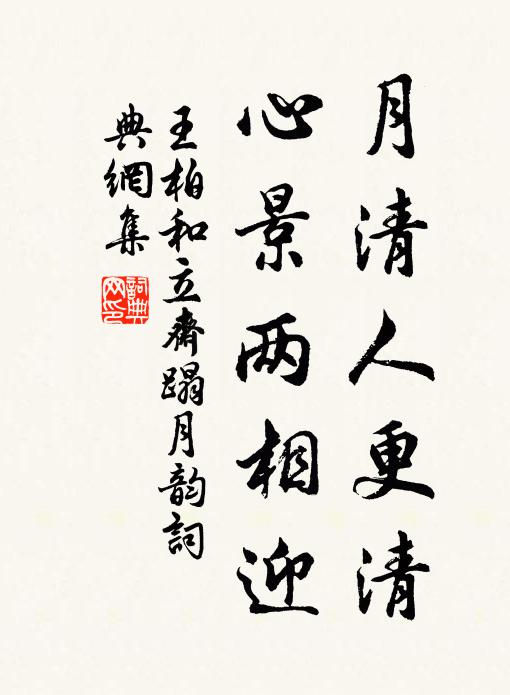 月清人更清
心景两相迎
王柏和立齋蹋月韵詞
典網集
詞典網印